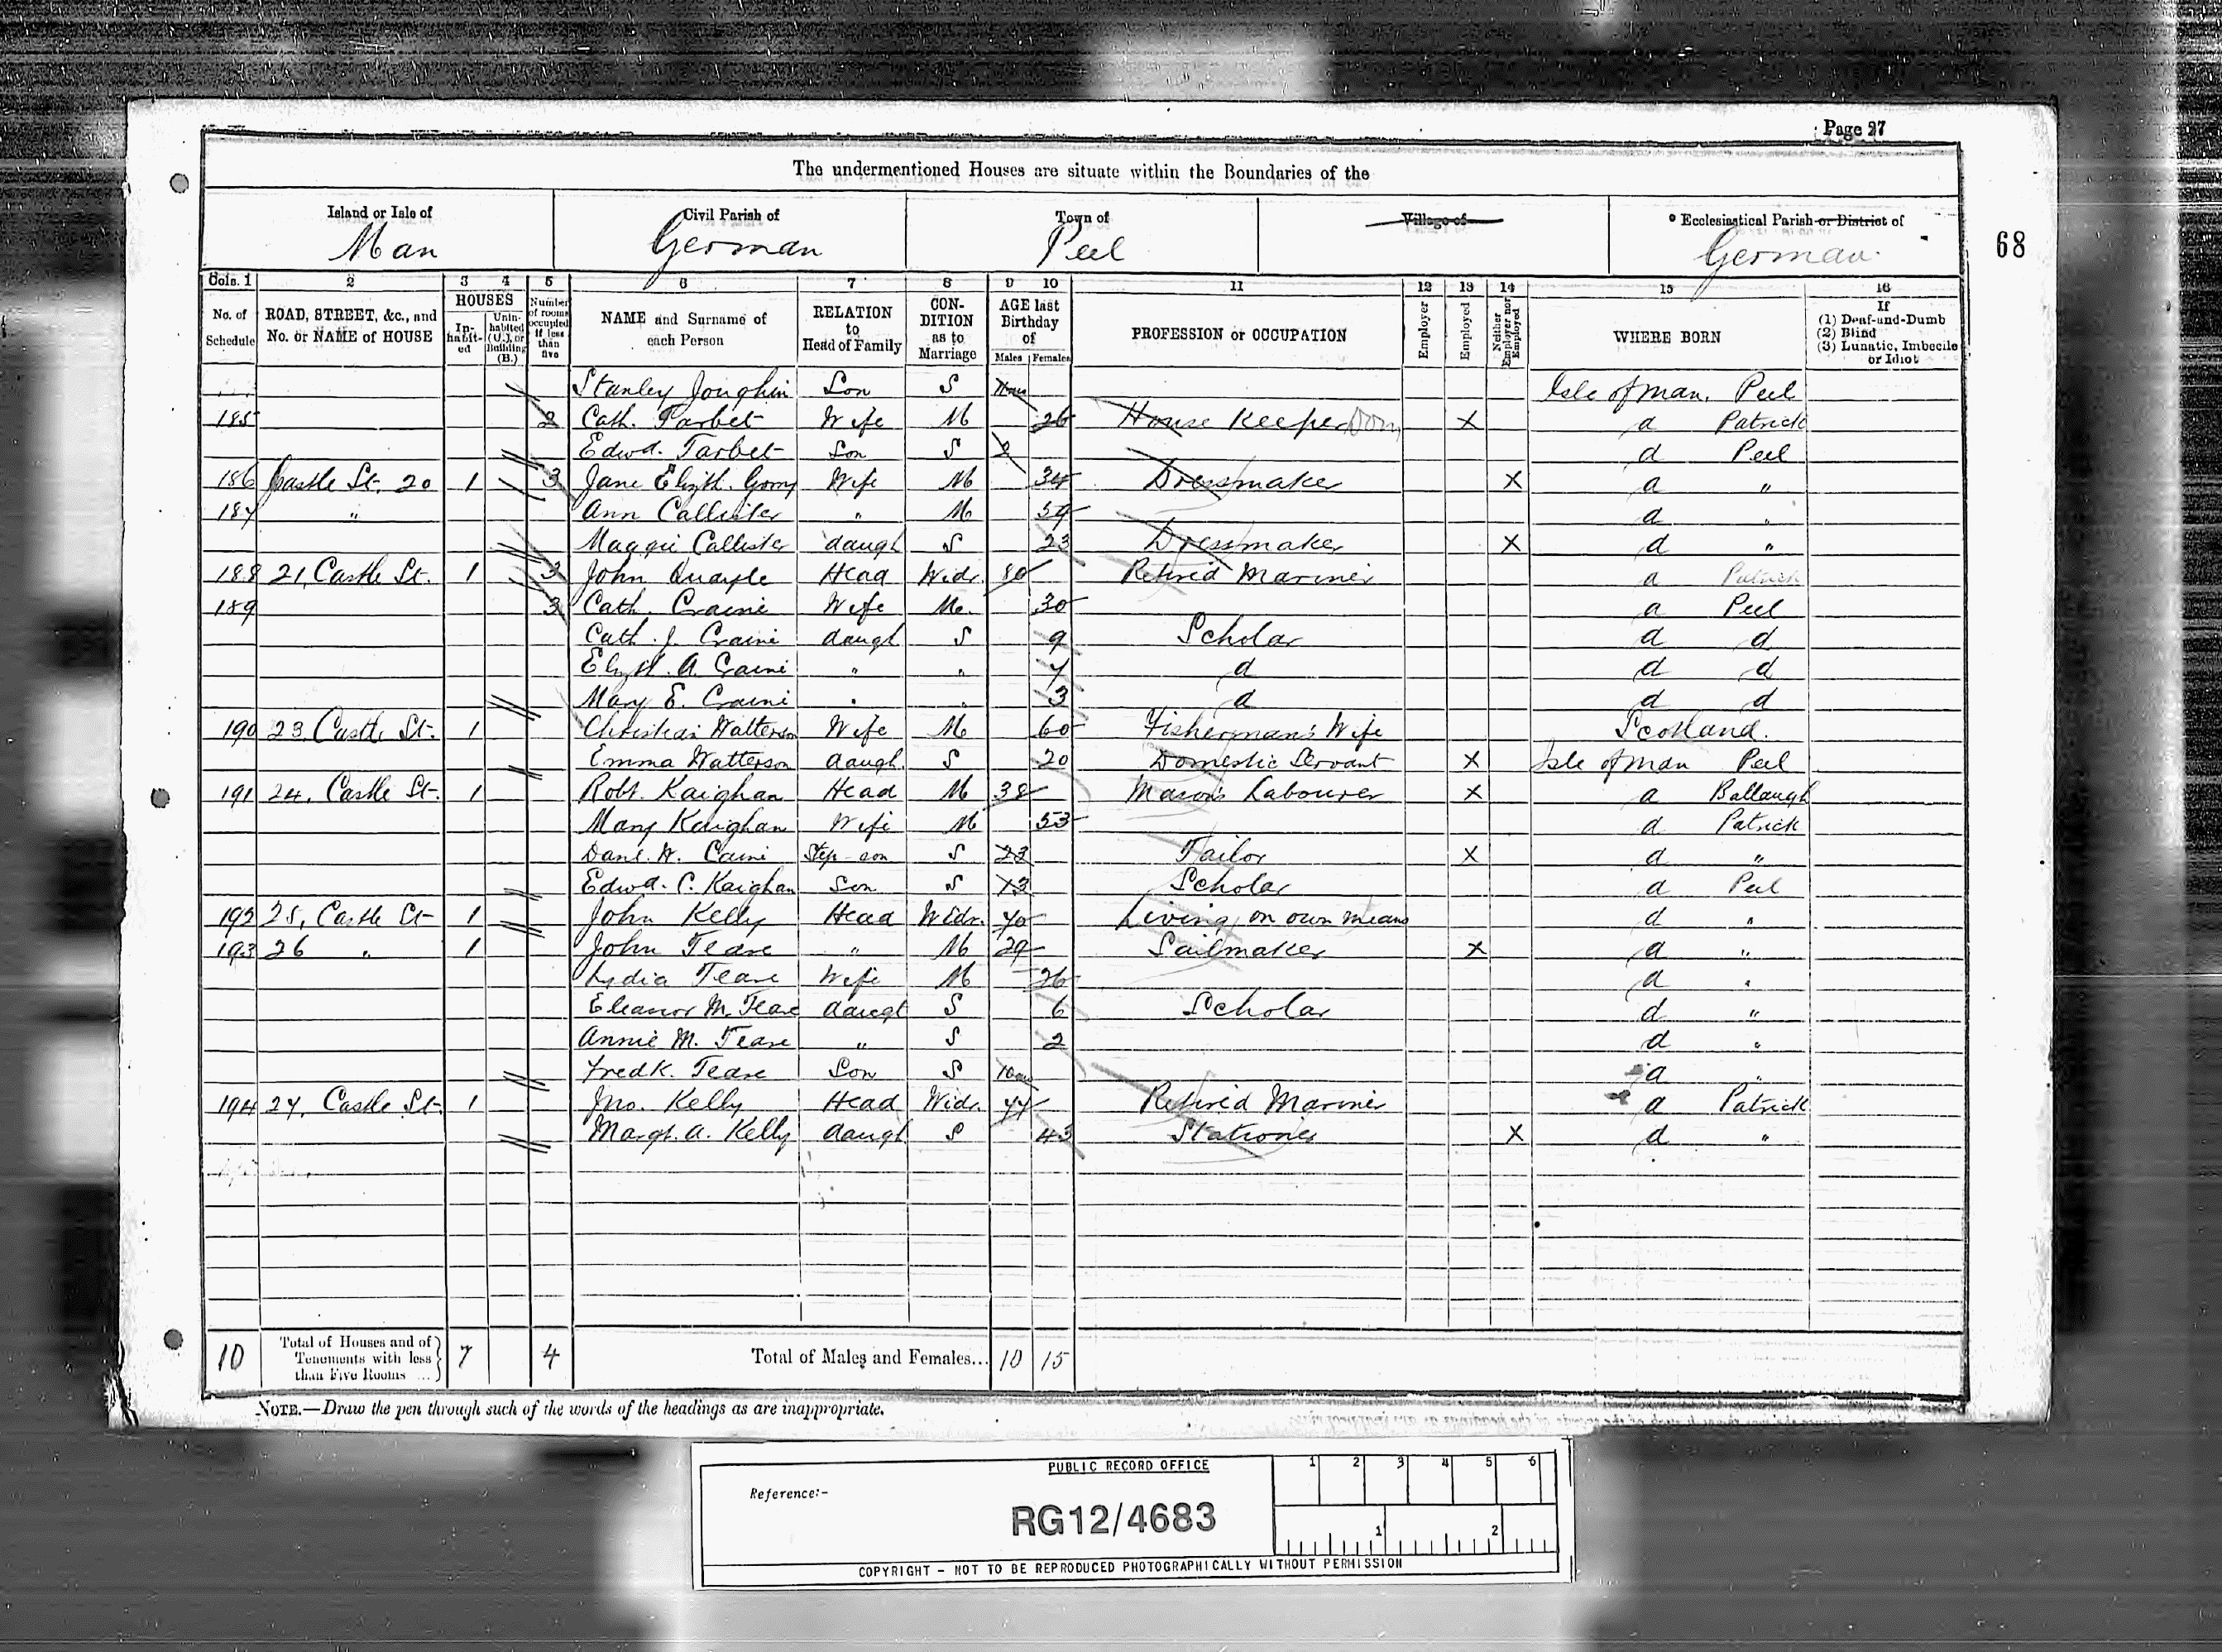 Page 27
The undermentioned Houses are situate within the Boundaries of the
Island or Isle of Man
Civil Parish of German
Town of Peel
Village of
Ecclesiastical Parish or District of German.
68
Cols. 1 2 3 4 5 6 7 8 9 10 11 12 13 14 15 16
No. of Schedule
ROAD, STREET, &c., and No. or NAME of HOUSE
HOUSES
In-habit-ed
Unin-habited (U.), or Building (B.)
Number of rooms occupied if less than five
NAME and Surname of each Person
RELATION to Head of Family
CON-DITION as to Marriage
AGE last Birthday of
Males Females
PROFESSION or OCCUPATION
Employer
Employed
Neither Employer nor Employed
WHERE BORN
If
(1) Deaf-and-Dumb
(2) Blind
(3) Lunatic, Imbecile or Idiot
Stanley Joughin Son S Isle of Man. Peel
185 2 Cath. Tarbet Wife M 26 House Keeper Dom X d Patrick
Edwd. Tarbet Son S 2 d Peel
186 Castle St. 20 1 3 Jane Elizth. Wife M 34 Dressmaker X d "
187 " Ann Callister " M 59 d "
Maggie Callister daugh S 23 Dressmaker X d "
188 21, Castle St. 1 3 John Quayle Head Widr. 80 Retired Mariner d Patrick
189 3 Cath. Craine Wife M. 30 d Peel
Cath. J. Craine daugh S 9 Scholar d d
Elizth. A. Craine " " 7 d d d
Mary E. Craine " " 3 d d d
190 23, Castle St. 1 Christian Watterson Wife M 60 Fisherman's Wife Scotland.
Emma Watterson daugh. S 20 Domestic Servant X Isle of Man Peel
191 24, Castle St. 1 Robt. Kaighan Head M 38 Mason's Labourer X d Ballaugh
Mary Kaighan Wife M 53 d Patrick
Danl. W. Caine Step-son S 23 Tailor X d "
Edwd. C. Kaighan Son S 13 Scholar d Peel
192 25, Castle St 1 John Kelly Head Widr. 70 Living on own means d "
193 26 " 1 John Teare " M 29 Sailmaker X d "
Lydia Teare Wife M 26 d "
Eleanor M. Teare daugt S 6 Scholar d "
Annie M. Teare " S 2 d "
Fredk. Teare Son S 10mo d "
194 27, Castle St. 1 Jno. Kelly Head Widr. 77 Retired Mariner d Patrick
Margt. A. Kelly daugh S 43 Stationer X d "
10 Total of Houses and of Tenements with less than Five Rooms ... 7 4 Total of Males and Females... 10 15
NOTE.—Draw the pen through such of the words of the headings as are inappropriate.
PUBLIC RECORD OFFICE
1 2 3 4 5 6
Reference:-
RG12/4683
1 2
COPYRIGHT - NOT TO BE REPRODUCED PHOTOGRAPHICALLY WITHOUT PERMISSION